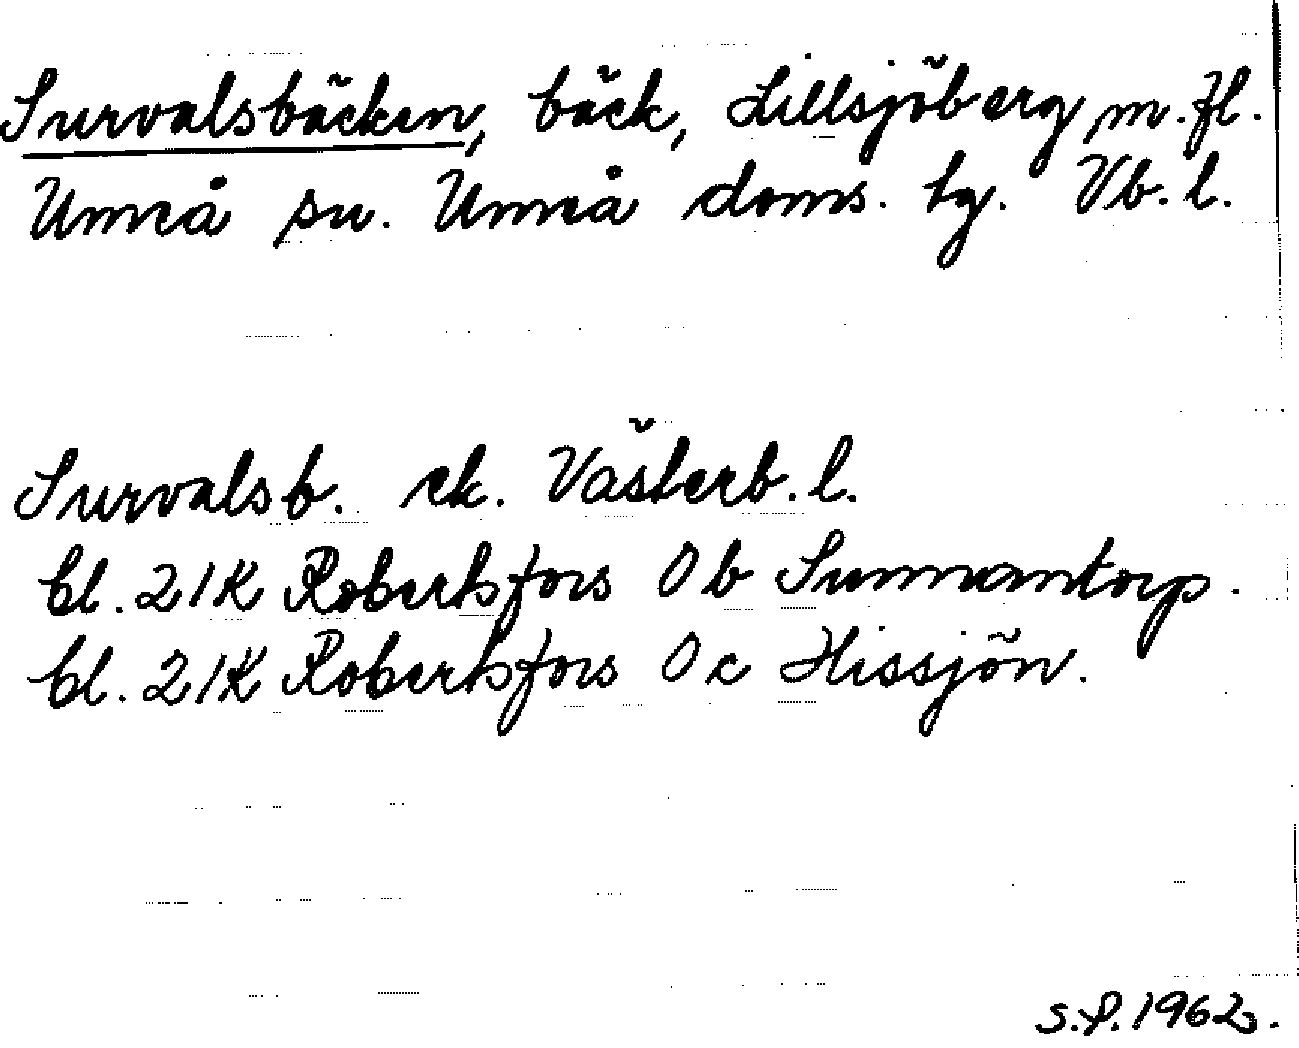 Survalsbäcken, bäck, Lillsjöberg m.fl.
Umeå sn. Umeå doms. tg. Vb. l.
Survalsb. ek. Västerb. l.
bl. 21K Robertsfors 0b Sunnansjötorp.
bl. 21K Robertsfors 0c Hissjön.
S.P. 1962.